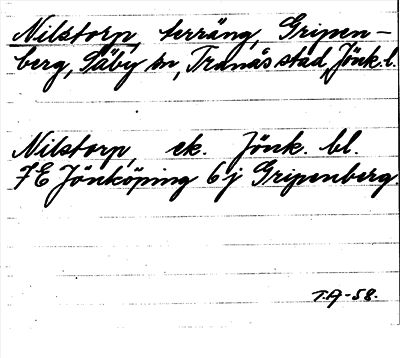 Nilstorp, terräng, Gripen-
berg, Säby sn, Tranås stad, Jönk.l.
Nilstorp, ek. Jönk. bl.
7E Jönköping 6j Gripenberg.
T.A-58.